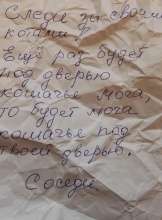 Следи за своим
котом!
Ещё раз будет
под дверью
кошачье моча,
то будет моча
кошачье под
твоей дверью.
Соседи